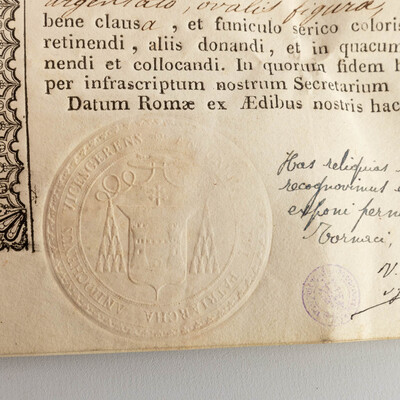 argentato, ovalis figuræ,
bene clausa, et funiculo serico coloris
retinendi, aliis donandi, et in quacum
nendi et collocandi. In quorum fidem h
per infrascriptum nostrum Secretarium
Datum Romæ ex Ædibus nostris hac
Has reliquias
recognovimus e
exponi perm
Tornaci,
V.
PATRIARCHA ANTIOCHENUS